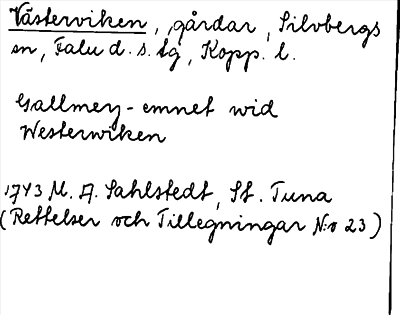 Västerviken, gårdar, Silvbergs
sn, Falu d. s. tg, Kopp. l.
Gallmey-emnet wid
Westerwiken
1743 M. A. Sahlstedt, St. Tuna
(Rettelser och Tillegningar N:o 23)